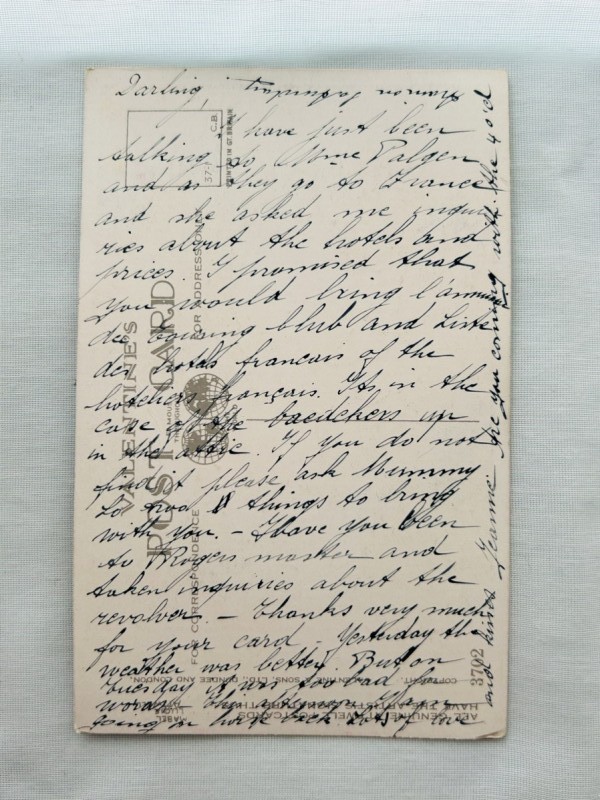 Darling,
I have just been
talking to Mme Palgen
and as they go to France
and she asked me inqui-
ries about the hotels and
prices. I promised that
you would bring l'annuaire
de touring club and Liste
des hotels francais of the
hoteliers français. It's in the
case of the baedekers up
in the attic. If you do not
find it please ask Mummy
things to bring
with you. - Have you been
to Rogers master and
taken inquiries about the
revolver. - Thanks very much
for your card. Yesterday the
weather was better. But on
tuesday it was too bad for
words. This afternoon
going in
and kisses Jeannie Are you coming with the 4 o'c
afternoon Saturday
VALENTINE'S
POST CARD
FAMOUS THROUGHOUT THE WORLD
FOR CORRESPONDENCE
FOR ADDRESS ONLY
PRINTED IN GT. BRITAIN
37-1 C.B.
3792
COPYRIGHT. VALENTINE & SONS, LTD., DUNDEE AND LONDON.
ALL GENUINE MABEL LUCIE ATTWELL POSTCARDS
HAVE THE ARTIST'S